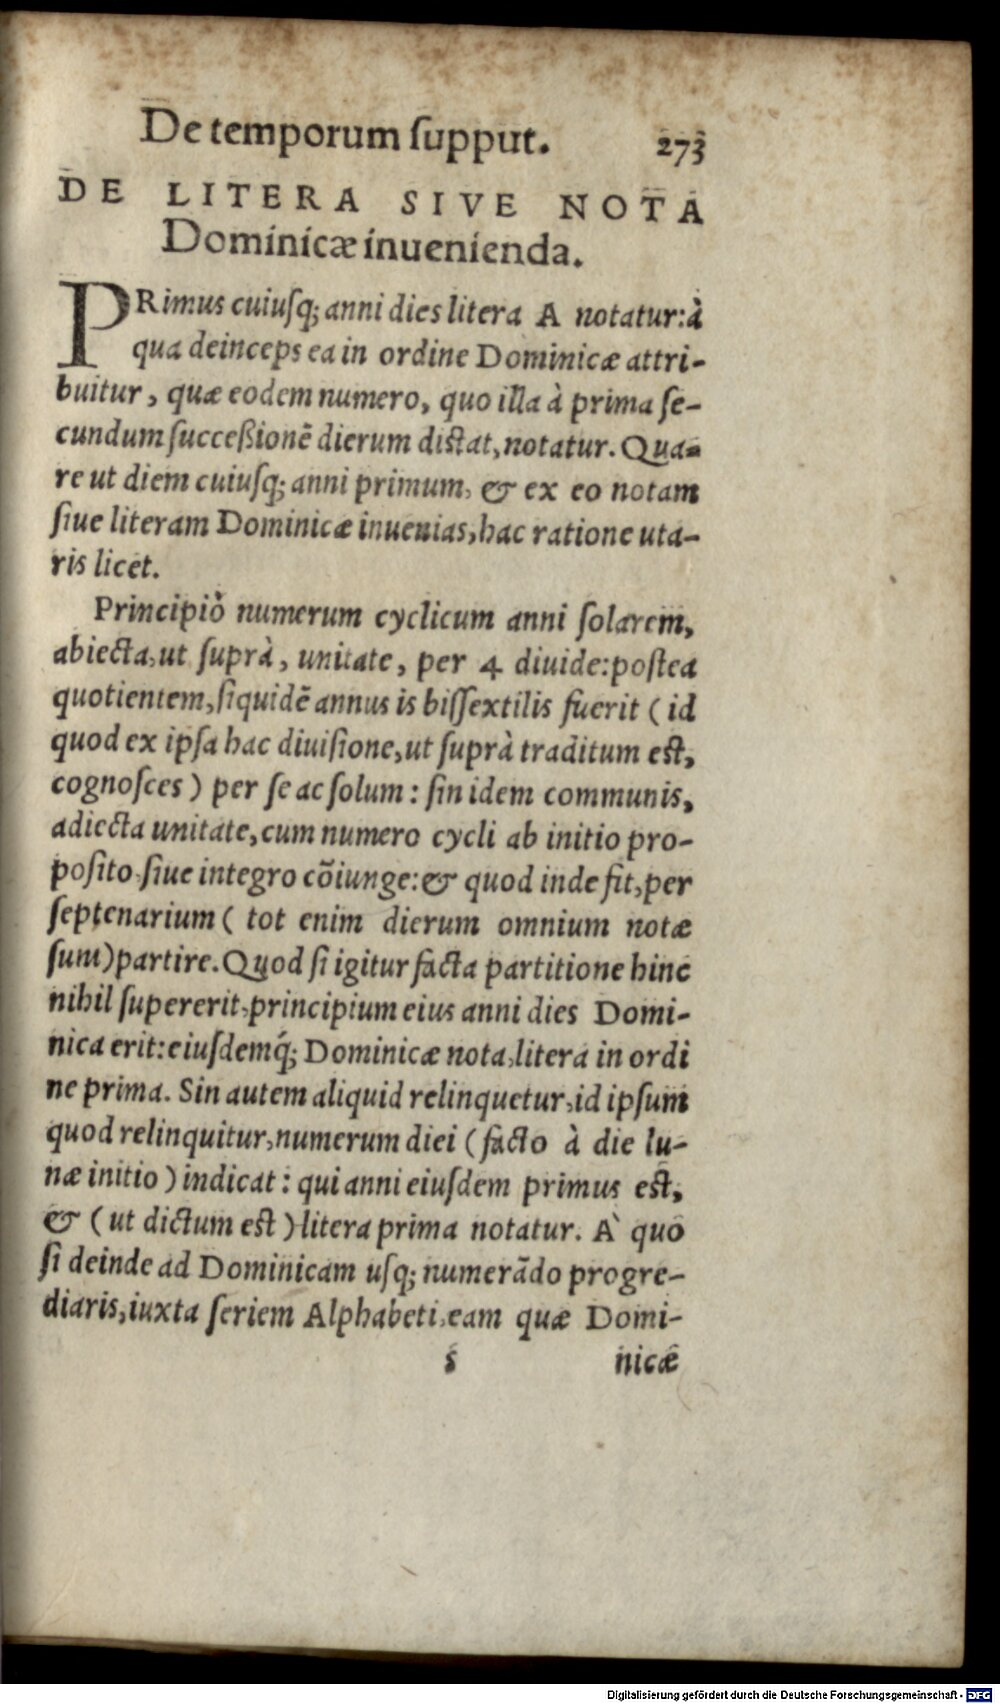 De temporum ſupput. 273
DE LITERA SIVE NOTA
Dominicæ inuenienda.
PRimus cuiuſq; anni dies litera A notatur: à
qua deinceps ea in ordine Dominicæ attri-
buitur, quæ eodem numero, quo illa à prima ſe-
cundum ſucceßionē dierum diſtat, notatur. Qua-
re ut diem cuiuſq; anni primum, & ex eo notam
ſiue literam Dominicæ inuenias, hac ratione uta-
ris licet.
Principiò numerum cyclicum anni ſolarem,
abiecta, ut ſuprà, unitate, per 4 diuide: poſtea
quotientem, ſiquidē annus is biſſextilis fuerit (id
quod ex ipſa hac diuiſione, ut ſuprà traditum eſt,
cognoſces) per ſe ac ſolum: ſin idem communis,
adiecta unitate, cum numero cycli ab initio pro-
poſito ſiue integro cōiunge: & quod inde fit, per
ſeptenarium (tot enim dierum omnium notæ
ſunt) partire. Quod ſi igitur facta partitione hinc
nihil ſupererit, principium eius anni dies Domi-
nica erit: eiuſdemq́; Dominicæ nota, litera in ordi
ne prima. Sin autem aliquid relinquetur, id ipſum
quod relinquitur, numerum diei (facto à die lu-
næ initio) indicat: qui anni eiuſdem primus eſt,
& (ut dictum eſt) litera prima notatur. A` quo
ſi deinde ad Dominicam uſq; numerādo progre-
diaris, iuxta ſeriem Alphabeti, eam quæ Domi-
s nicæ
Digitalisierung gefördert durch die Deutsche Forschungsgemeinschaft - DFG